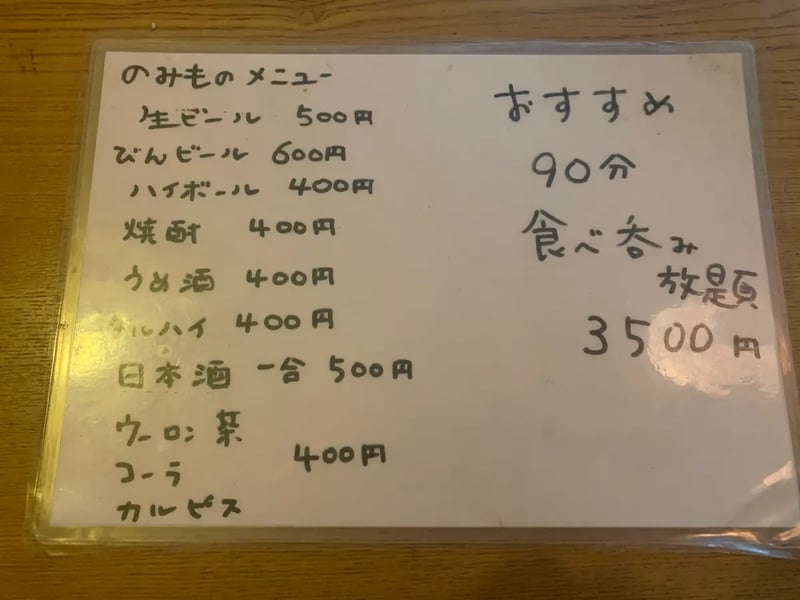 のみものメニュー
生ビール 500円
びんビール 600円
ハイボール 400円
焼酎 400円
うめ酒 400円
ルハイ 400円
日本酒 一合 500円
ウーロン茶
コーラ 400円
カルピス
おすすめ
90分
食べ呑み
放題
3500円